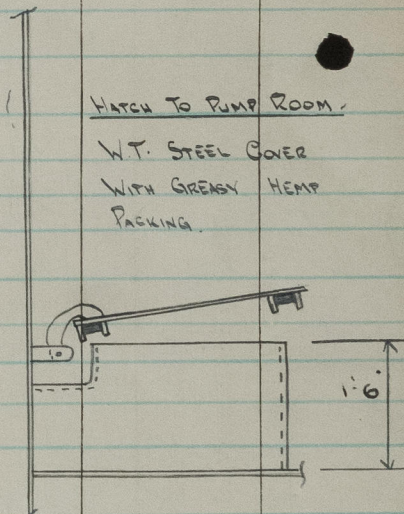 HATCH TO PUMP ROOM.
W.T. STEEL COVER
WITH GREASY HEMP
PACKING.
1'-6"